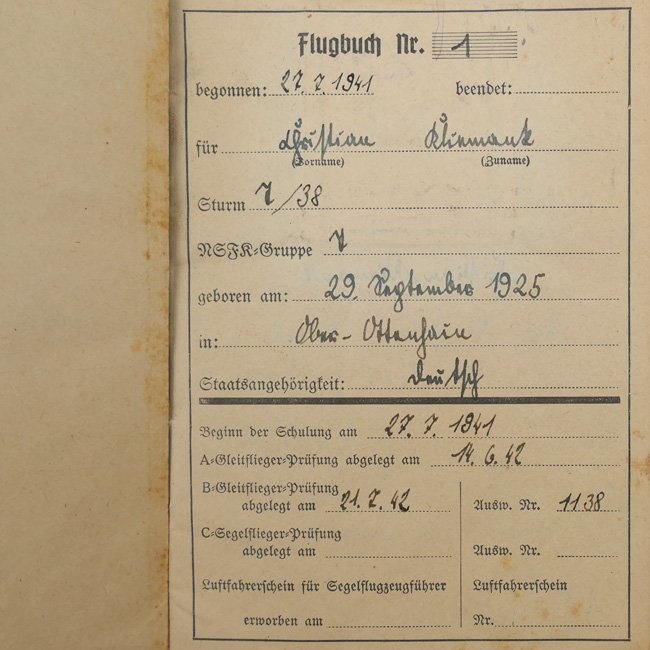 Flugbuch Nr. 1
begonnen: 27. 7. 1941 beendet:
für Christian Kliemank
(Vorname) (Zuname)
Sturm 7/38
NSFK-Gruppe 7
geboren am: 29. September 1925
in: Ober-Ottenhain
Staatsangehörigkeit: deutsch
Beginn der Schulung am 27. 7. 1941
A-Gleitflieger-Prüfung abgelegt am 14. 6. 42
B-Gleitflieger-Prüfung
abgelegt am 21. 7. 42 Ausw. Nr. 1138
C-Segelflieger-Prüfung
abgelegt am Ausw. Nr.
Luftfahrerschein für Segelflugzeugführer Luftfahrerschein
erworben am Nr.